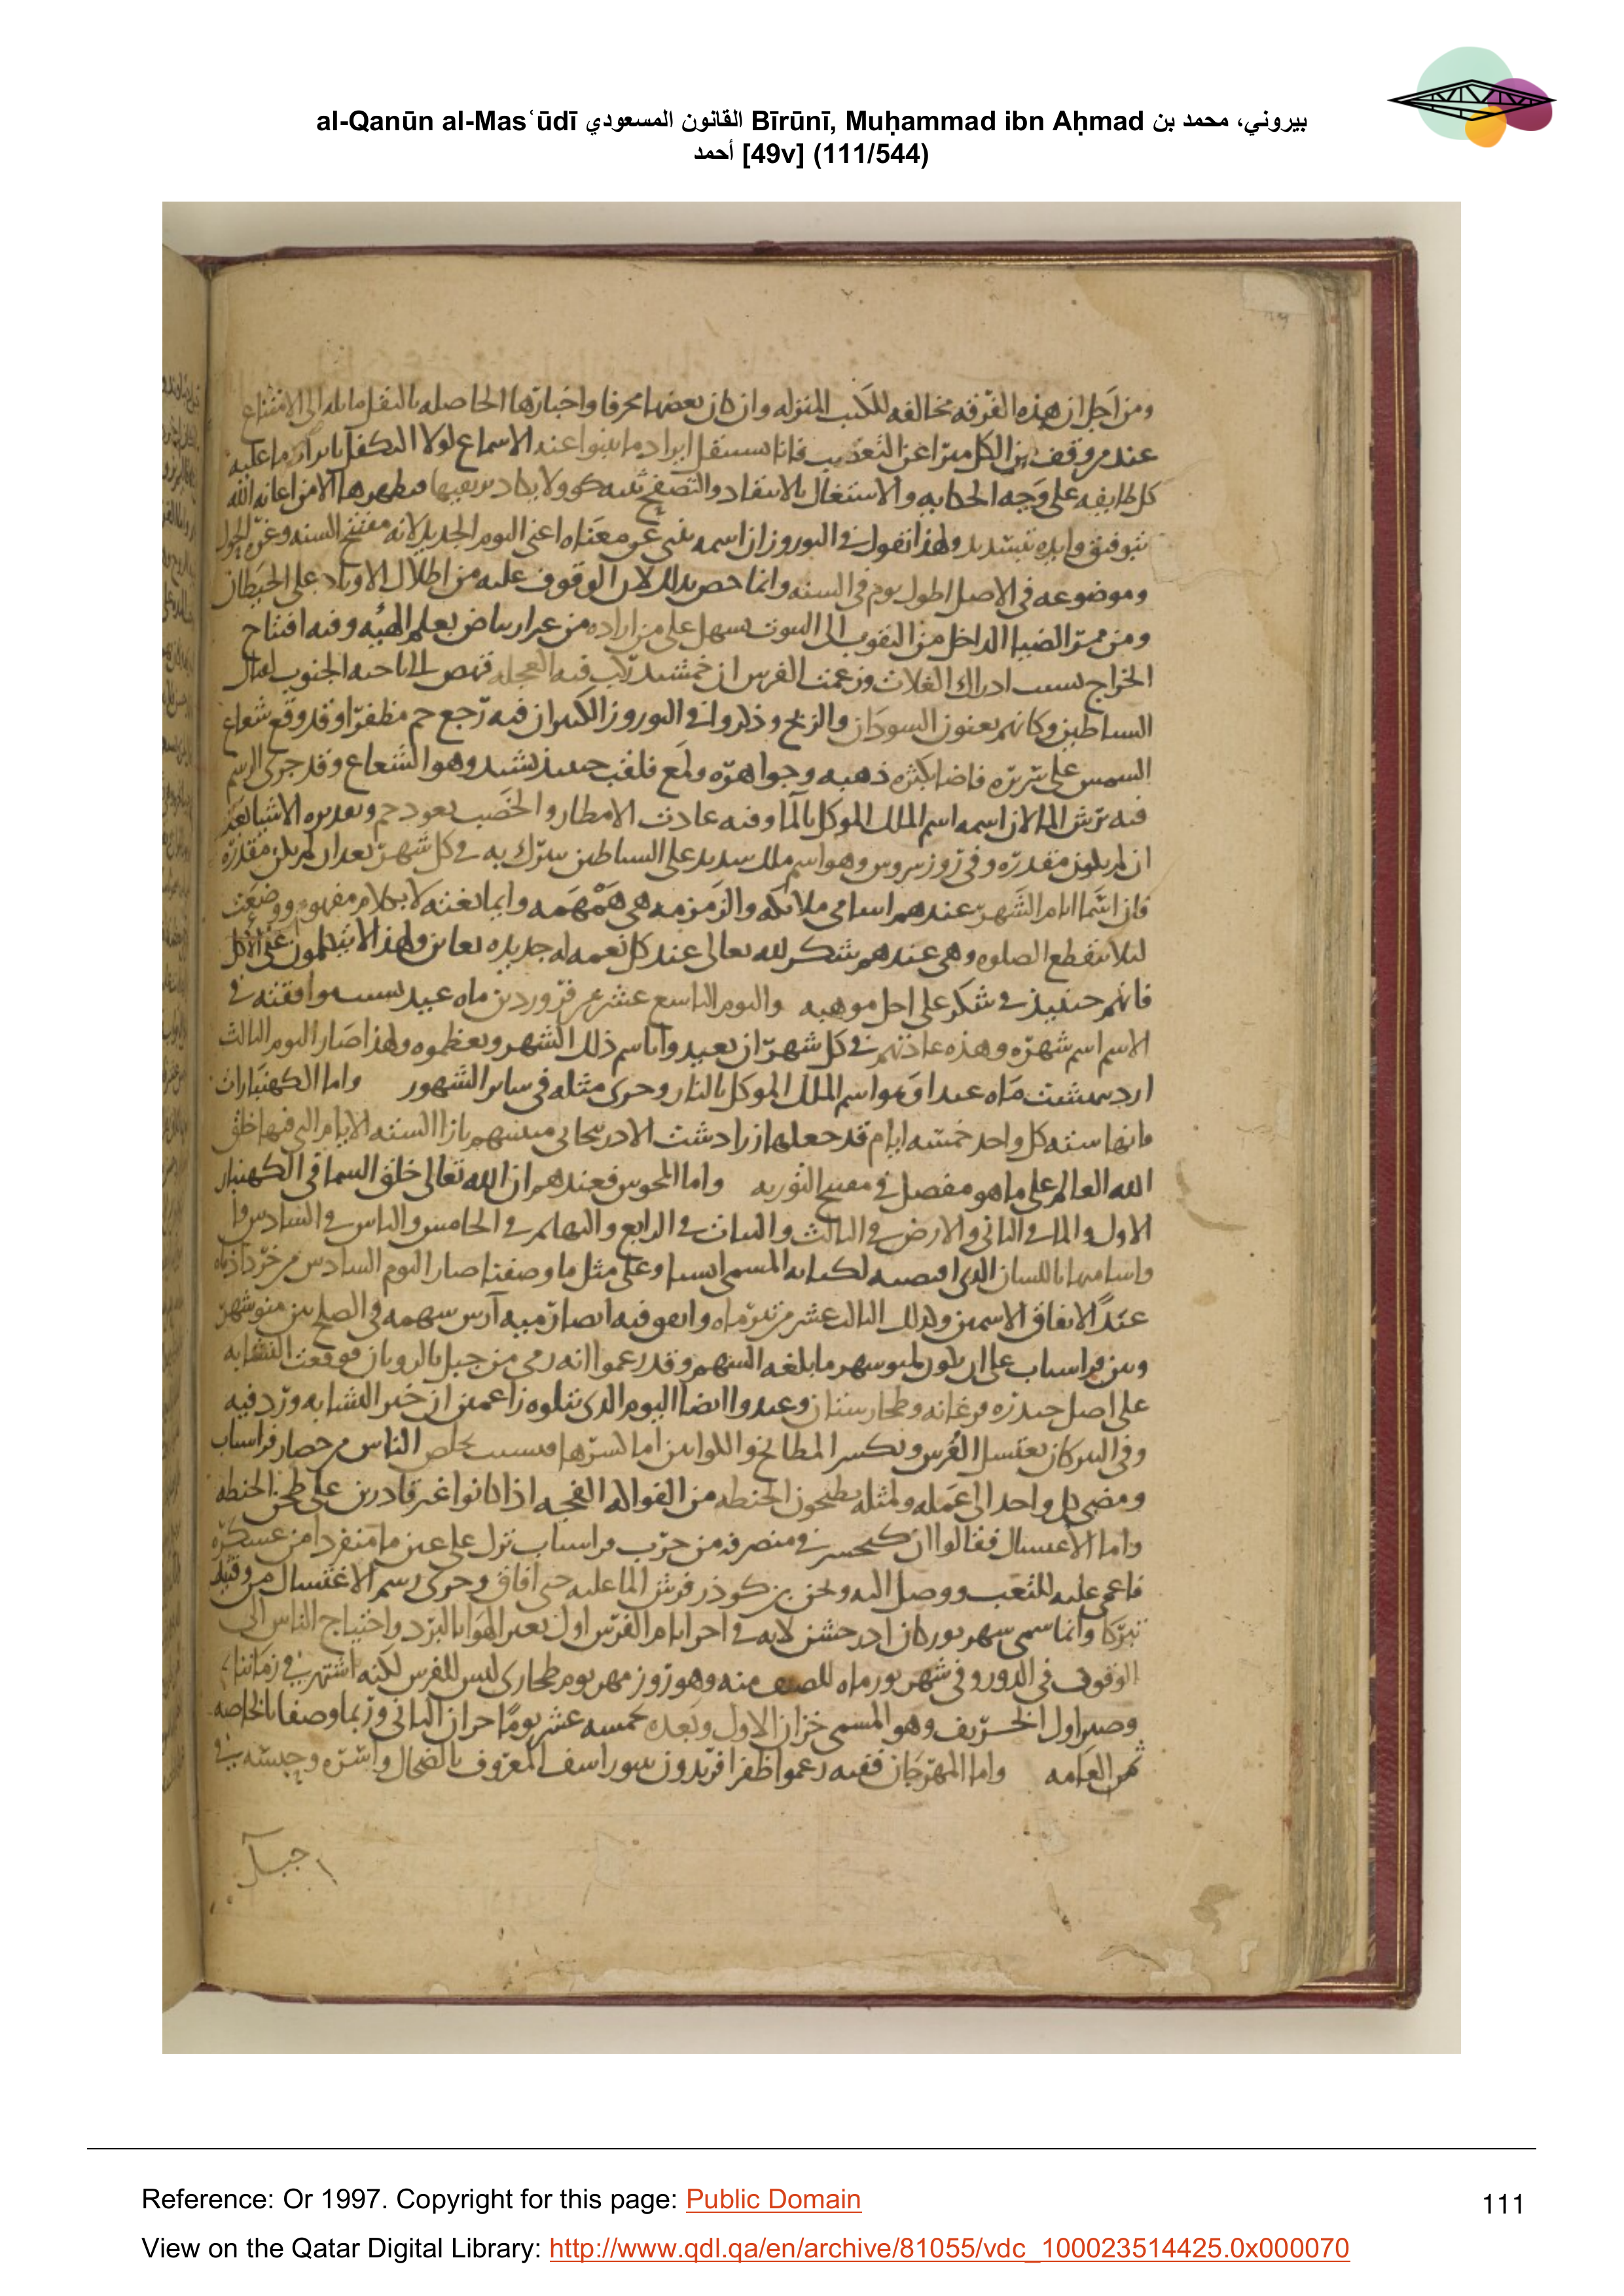 al-Qanūn al-Masʿūdī القانون المسعودي Bīrūnī, Muḥammad ibn Aḥmad بيروني، محمد بن
أحمد [49v] (111/544)
ومن اجل ان هذه الفرقه مخالفه للكتب المنزله وان كان بعضها محرفا واخبارها الحاصله بالنقل مايله الى الامتناع
عند من وقف من الكل مبرا عن التعصب فانا نستقل ايراد ما ينبوا عند الاسماع لولا التكفل بايراد ما عليه
كل طايفه على وجه الحكايه والاشتغال بالانتقاد والتصفح الا من اعانه الله
بتوفيق وايده بتسديد ولهذا نقول في النوروز ان اسمه ينبى عن معناه اعنى اليوم الجديد لانه مفتتح السنه وغره الحول
وموضوعه في الاصل اطول يوم في السنه وانما خص بذلك لان الوقوف عليه من اظلال الاوتاد على الحيطان
ومن ممر الضيا الداخل من الثقوب الى البيوت يسهل على من اراده من غير ارتياض بعلم الهيئه وفيه افتتاح
الخراج بسبب ادراك الغلات وزعمت الفرس ان جمشيد ركب فيه العجله فنهض الى ناحيه الجنوب لقتال
الشياطين وكانهم يعنون السودان والزنج وذكروا في النوروز الكبير ان فيه رجع جم مظفرا وقد وقع شعاع
الشمس على سريره فاضا بكثره ذهبه وجواهره ولمع فلقب حينئذ بشيد وهو الشعاع وقد جرى الرسم
فيه برش الما لان اسمه اسم الملك الموكل بالما وفيه عادت الامطار والخصب بعود جم وتقديره الاشيا بعد
ان لم يكن مقدره وفي روز سروش وهو اسم ملك شديد على الشياطين يتبرك به في كل شهر بعد ان لم يكن مقدره
فان اسما ايام الشهر عندهم اسامي ملائكه والزمزمه هي همهمه وايما بغنه لا بكلام مفهوم ووضعت
ليلا تنقطع الصلوه وهي عندهم شكر لله تعالى عند كل نعمه له جديده تعاين ولهذا لا يتكلمون على الاكل
فانهم حينئذ في شكر على اجل موهبه واليوم التاسع عشر من فروردين ماه عيد بسبب موافقته في
الاسم اسم شهره وهذه عادتهم في كل شهر ان يعيدوا باسم ذلك الشهر ويعظموه ولهذا صار اليوم الثالث
ارديبهشت ماه عيدا وهو اسم الملك الموكل بالنار وجرى مثله في ساير الشهور واما الكهنبارات
فانها سته كل واحد خمسه ايام قد جعلها زرادشت الاذربيجاني بازا السته الايام التي فيها خلق
الله العالم على ما هو مفصل في مفتتح التوريه واما المجوس فعندهم ان الله تعالى خلق السما في الكهنبار
الاول والما في الثاني والارض في الثالث والنبات في الرابع والبهايم في الخامس والناس في السادس
واساميها باللسان الذي لكتابه المسمى ابستا وعلى مثل ما وصفنا صار اليوم السادس من خرداذماه
عيدا لاتفاق الاسمين وكذلك الثالث عشر من تيرماه واتفق فيه ايضا رميه آرش سهمه في الصلح بين منوشهر
وبين فراسياب على ان يكون لمنوشهر ما بلغه السهم وقد زعموا انه رمى من جبل بالرويان فوقعت النشابه
على اصل جوزه فرغانه وطخارستان وعيدوا ايضا اليوم الذي يتلوه زاعمين ان خبر النشابه ورد فيه
وفي التيركان يغتسل الفرس وتكسر المطابخ والكوانين اما كسرها فبسبب تخلص الناس من حصار فراسياب
ومضى كل واحد الى عمله ولمثله يطبخون الحنطه من الفواكه الفجه اذا كانوا غير قادرين على طحن الحنطه
واما الاغتسال فقالوا ان كيخسر في منصرفه من حرب فراسياب نزل على عين ما منفردا من عسكره
فاغمى عليه للتعب ووصل اليه ويجن بن كوذر فرش الما عليه حتى افاق وجرى رسم الاغتسال من وقته
تبركا وانما سمى شهريوركان اذرجشن لانه في اخر ايام الفرس اول تغير الهوا بالبرد واحتياج الناس الى
الوقود في الدور وفي شهريورماه للنصف منه وهو روز مهر يوم طخارى ليس للفرس لكنه اشتهر في زماننا
وصير اول الخريف وهو المسمى خزان الاول وبعده بخمسه عشر يوما خزان الثاني وربما وصفا بالخاصه
ثم العامه واما المهرجان ففيه زعموا ظفر افريدون ببيوراسف المعروف بالضحاك واسره وحبسه في
جبل
Reference: Or 1997. Copyright for this page: Public Domain
111
View on the Qatar Digital Library: http://www.qdl.qa/en/archive/81055/vdc_100023514425.0x000070